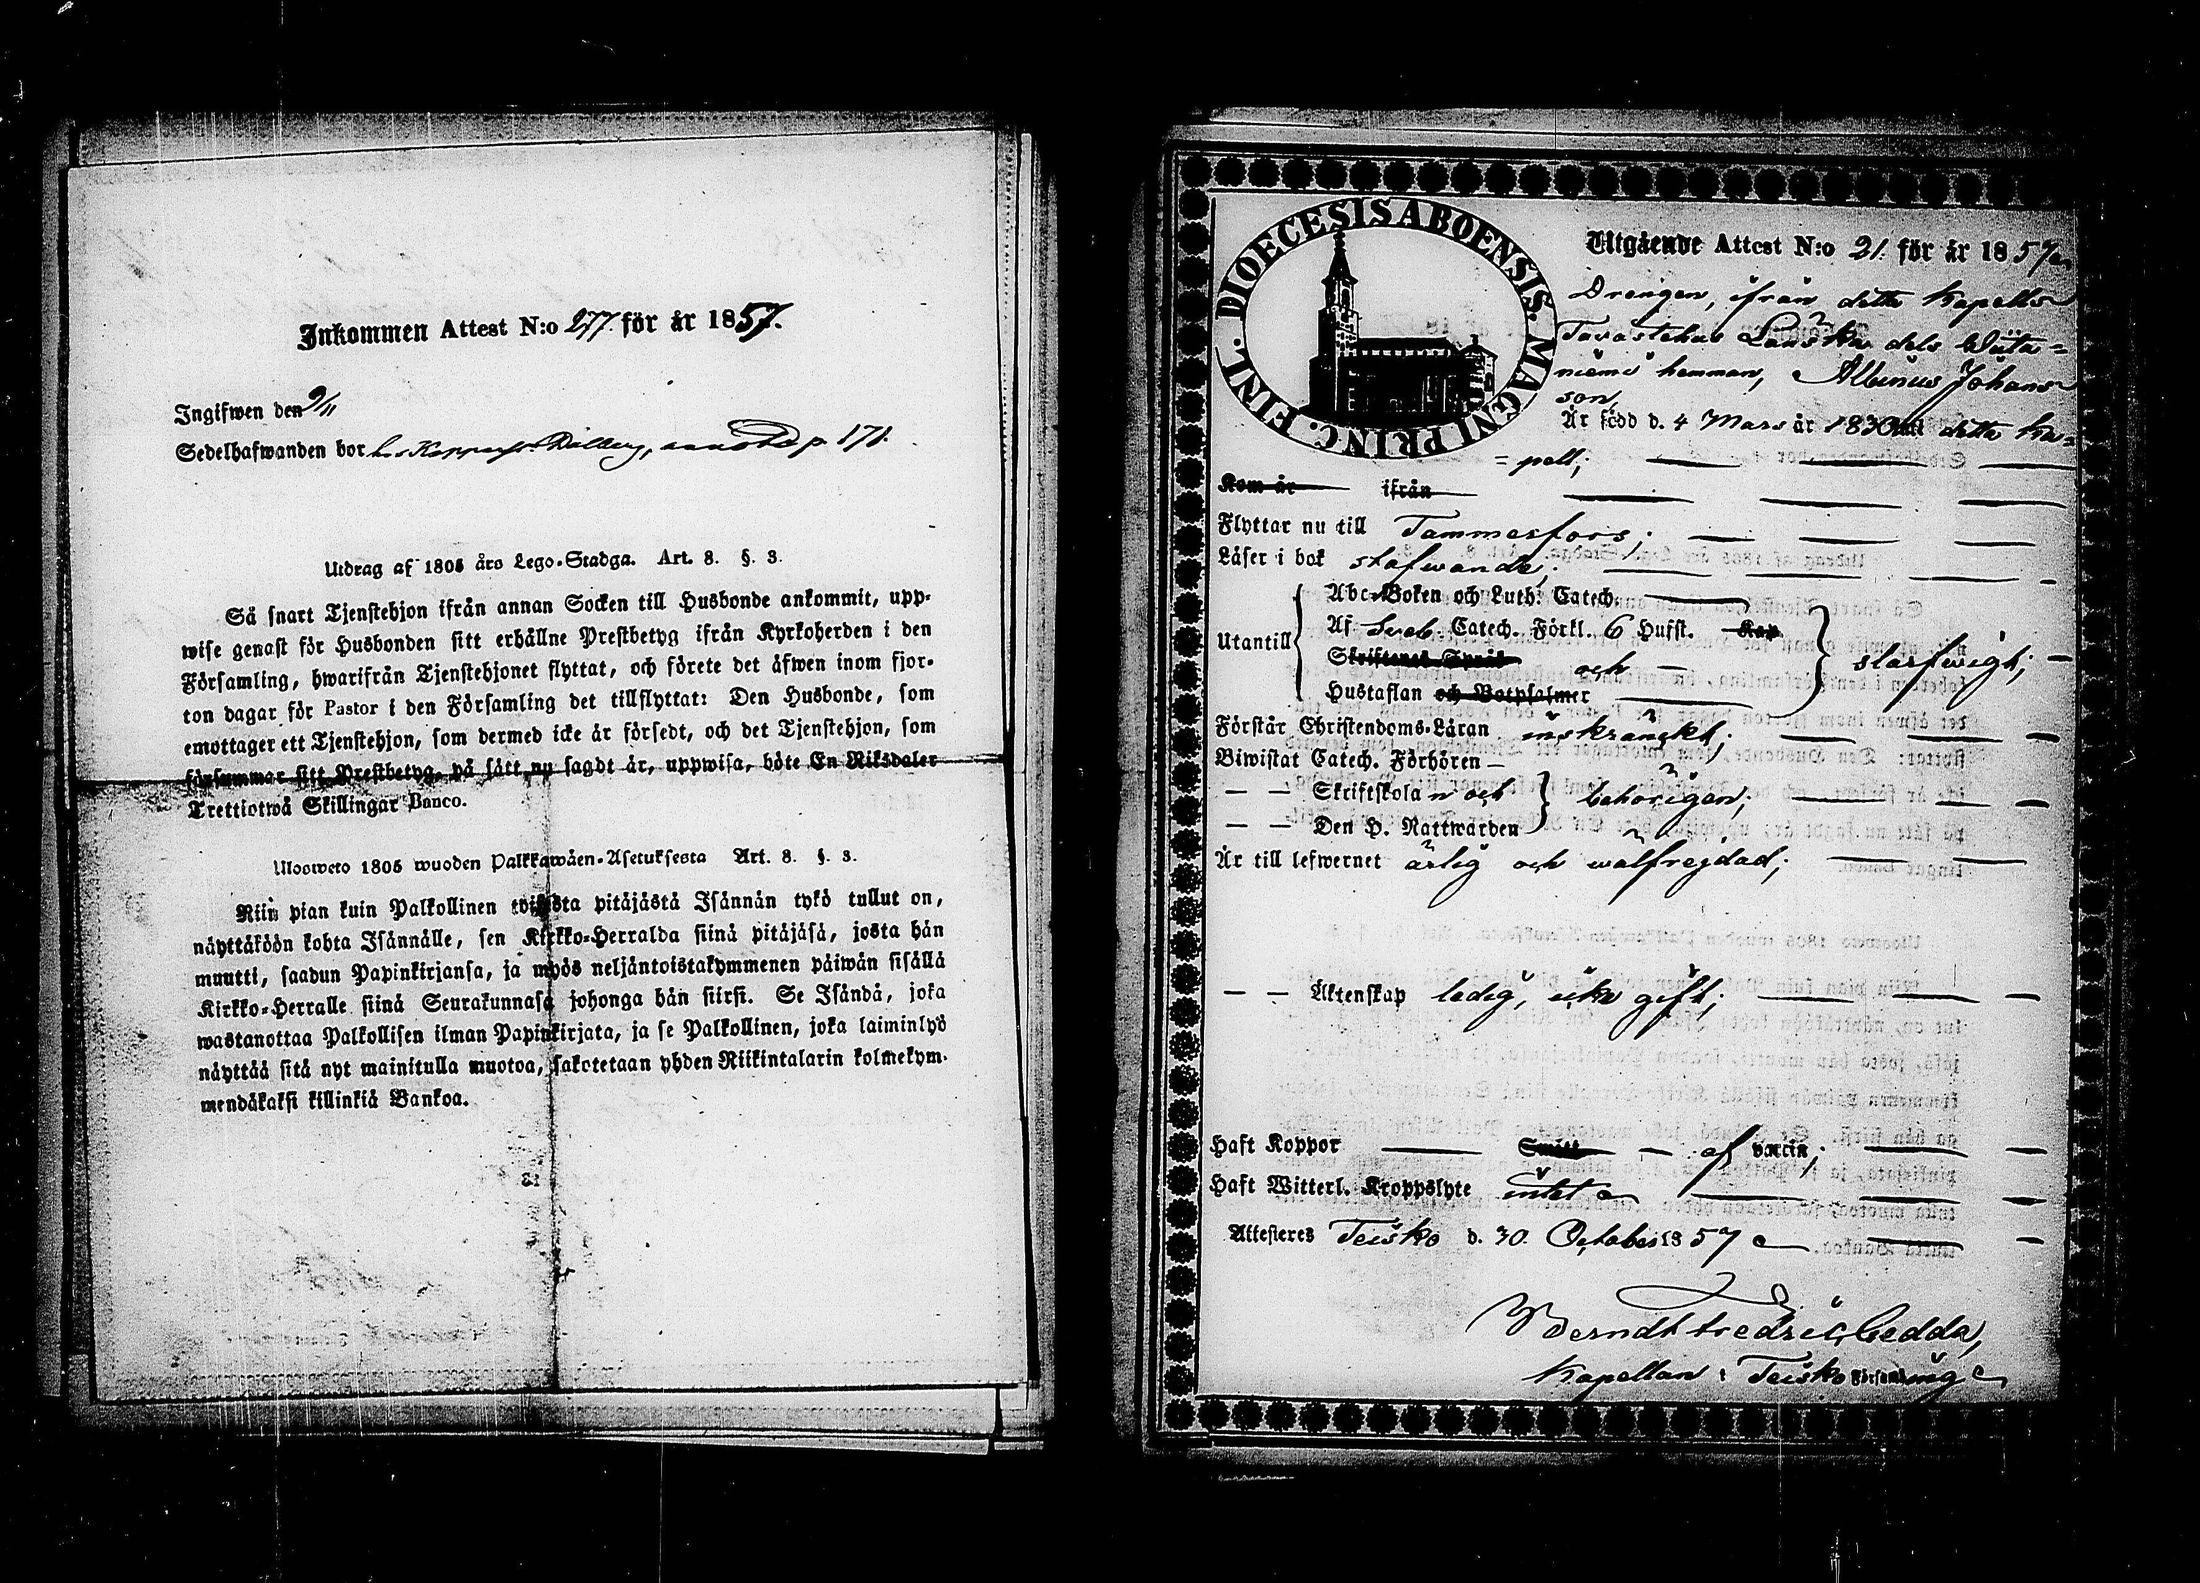 Inkommen Attest N:o 277. för år 1857.
Ingifwen den 9/11
Sedelhafwanden bor hos Kopparsl. Dälberg, p. 171.
Utdrag af 1805 års Lego-Stadga. Art. 8. §. 3.
Så snart Tjenstehjon ifrån annan Socken till Husbonde ankommit, upp-
wise genast för Husbonden sitt erhållne Prestbetyg ifrån Kyrkoherden i den
Församling, hwarifrån Tjenstehjonet flyttat, och förete det äfwen inom fjor-
ton dagar för Pastor i den Församling det tillflyttat: Den Husbonde, som
emottager ett Tjenstehjon, som dermed icke är försedt, och det Tjenstehjon, som
försummar sitt Prestbetyg, på sätt nu sagdt är, uppwisa, böte En Riksdaler
Trettiotwå Skillingar Banco.
Ulosweto 1805 wuoden Palkkawäen-Asetuksesta Art. 8. §. 3.
Niin pian kuin Palkollinen toisesta pitäjästä Isännän tykö tullut on,
näyttäköön kohta Isännälle, sen Kirkko-Herralda siinä pitäjäsä, josta hän
muutti, saadun Papinkirjansa, ja myös neljäntoistakymmenen päiwän sisällä
Kirkko-Herralle siinä Seurakunnasa johonga hän siirsi. Se Isändä, joka
wastanottaa Palkollisen ilman Papinkirjata, ja se Palkollinen, joka laiminlyö
näyttää sitä nyt mainitulla muotoa, sakotetaan yhden Riikintalarin kolmekym-
mendäkaksi killinkiä Bankoa.
DIOECESIS ABOENSIS. MAGNI PRINC. FINL.
Utgående Attest N:o 21. för år 1857
Drengen, ifrån detta Kapells
Tavastehus Länska dels Wiita=
niemi hemman, Albinus Johans
son,
Är född d. 4 Mars år 1830 i detta Ka=
=pell;
Kom år ifrån
Flyttar nu till Tammerfors;
Läser i bok stafwande;
Utantill
Abc-Boken och Luth. Catech.
Af Sveb. Catech. Förkl. 6 Hufst. Kap
Skriftenes Språk och
Hustaflan och Botpsalmer
slarfwigt;
Förstår Christendoms-Läran inskränckt;
Biwistat Catech. Förhören
— — Skriftskolan och
— — Den H. Nattwarden
behörigen;
Är till lefwernet ärlig och wälfregdad;
— — Äktenskap ledig, icke gift;
Haft Koppor Smitt af vaccin;
Haft Witterl. Kroppslyte intet
Attesteres Teisko d. 30. October 1857
Berndt Fredric Gedda,
Kapellan i Teisko Församling